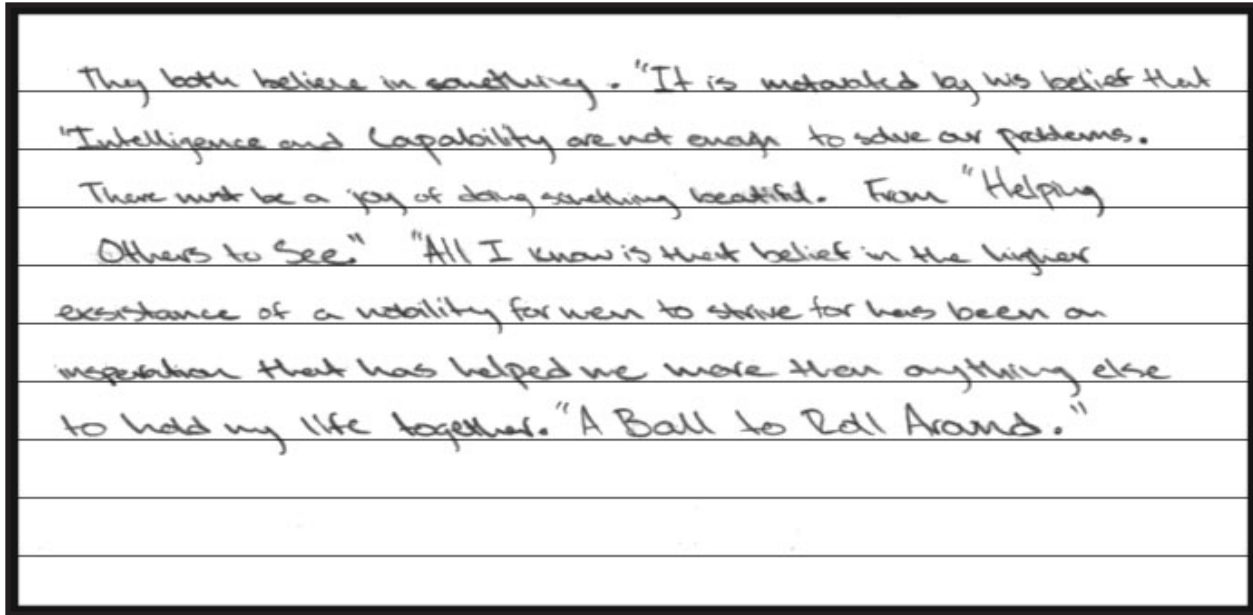 They both believe in something. "It is motavated by his belief that
"Intelligence and Capability are not enough to solve our problems.
There must be a joy of doing something beautiful. From "Helping
Others to See." "All I know is that belief in the higher
exsistance of a nobility for men to strive for has been an
insperation that has helped me more than anything else
to hold my life together. "A Ball to Roll Around."